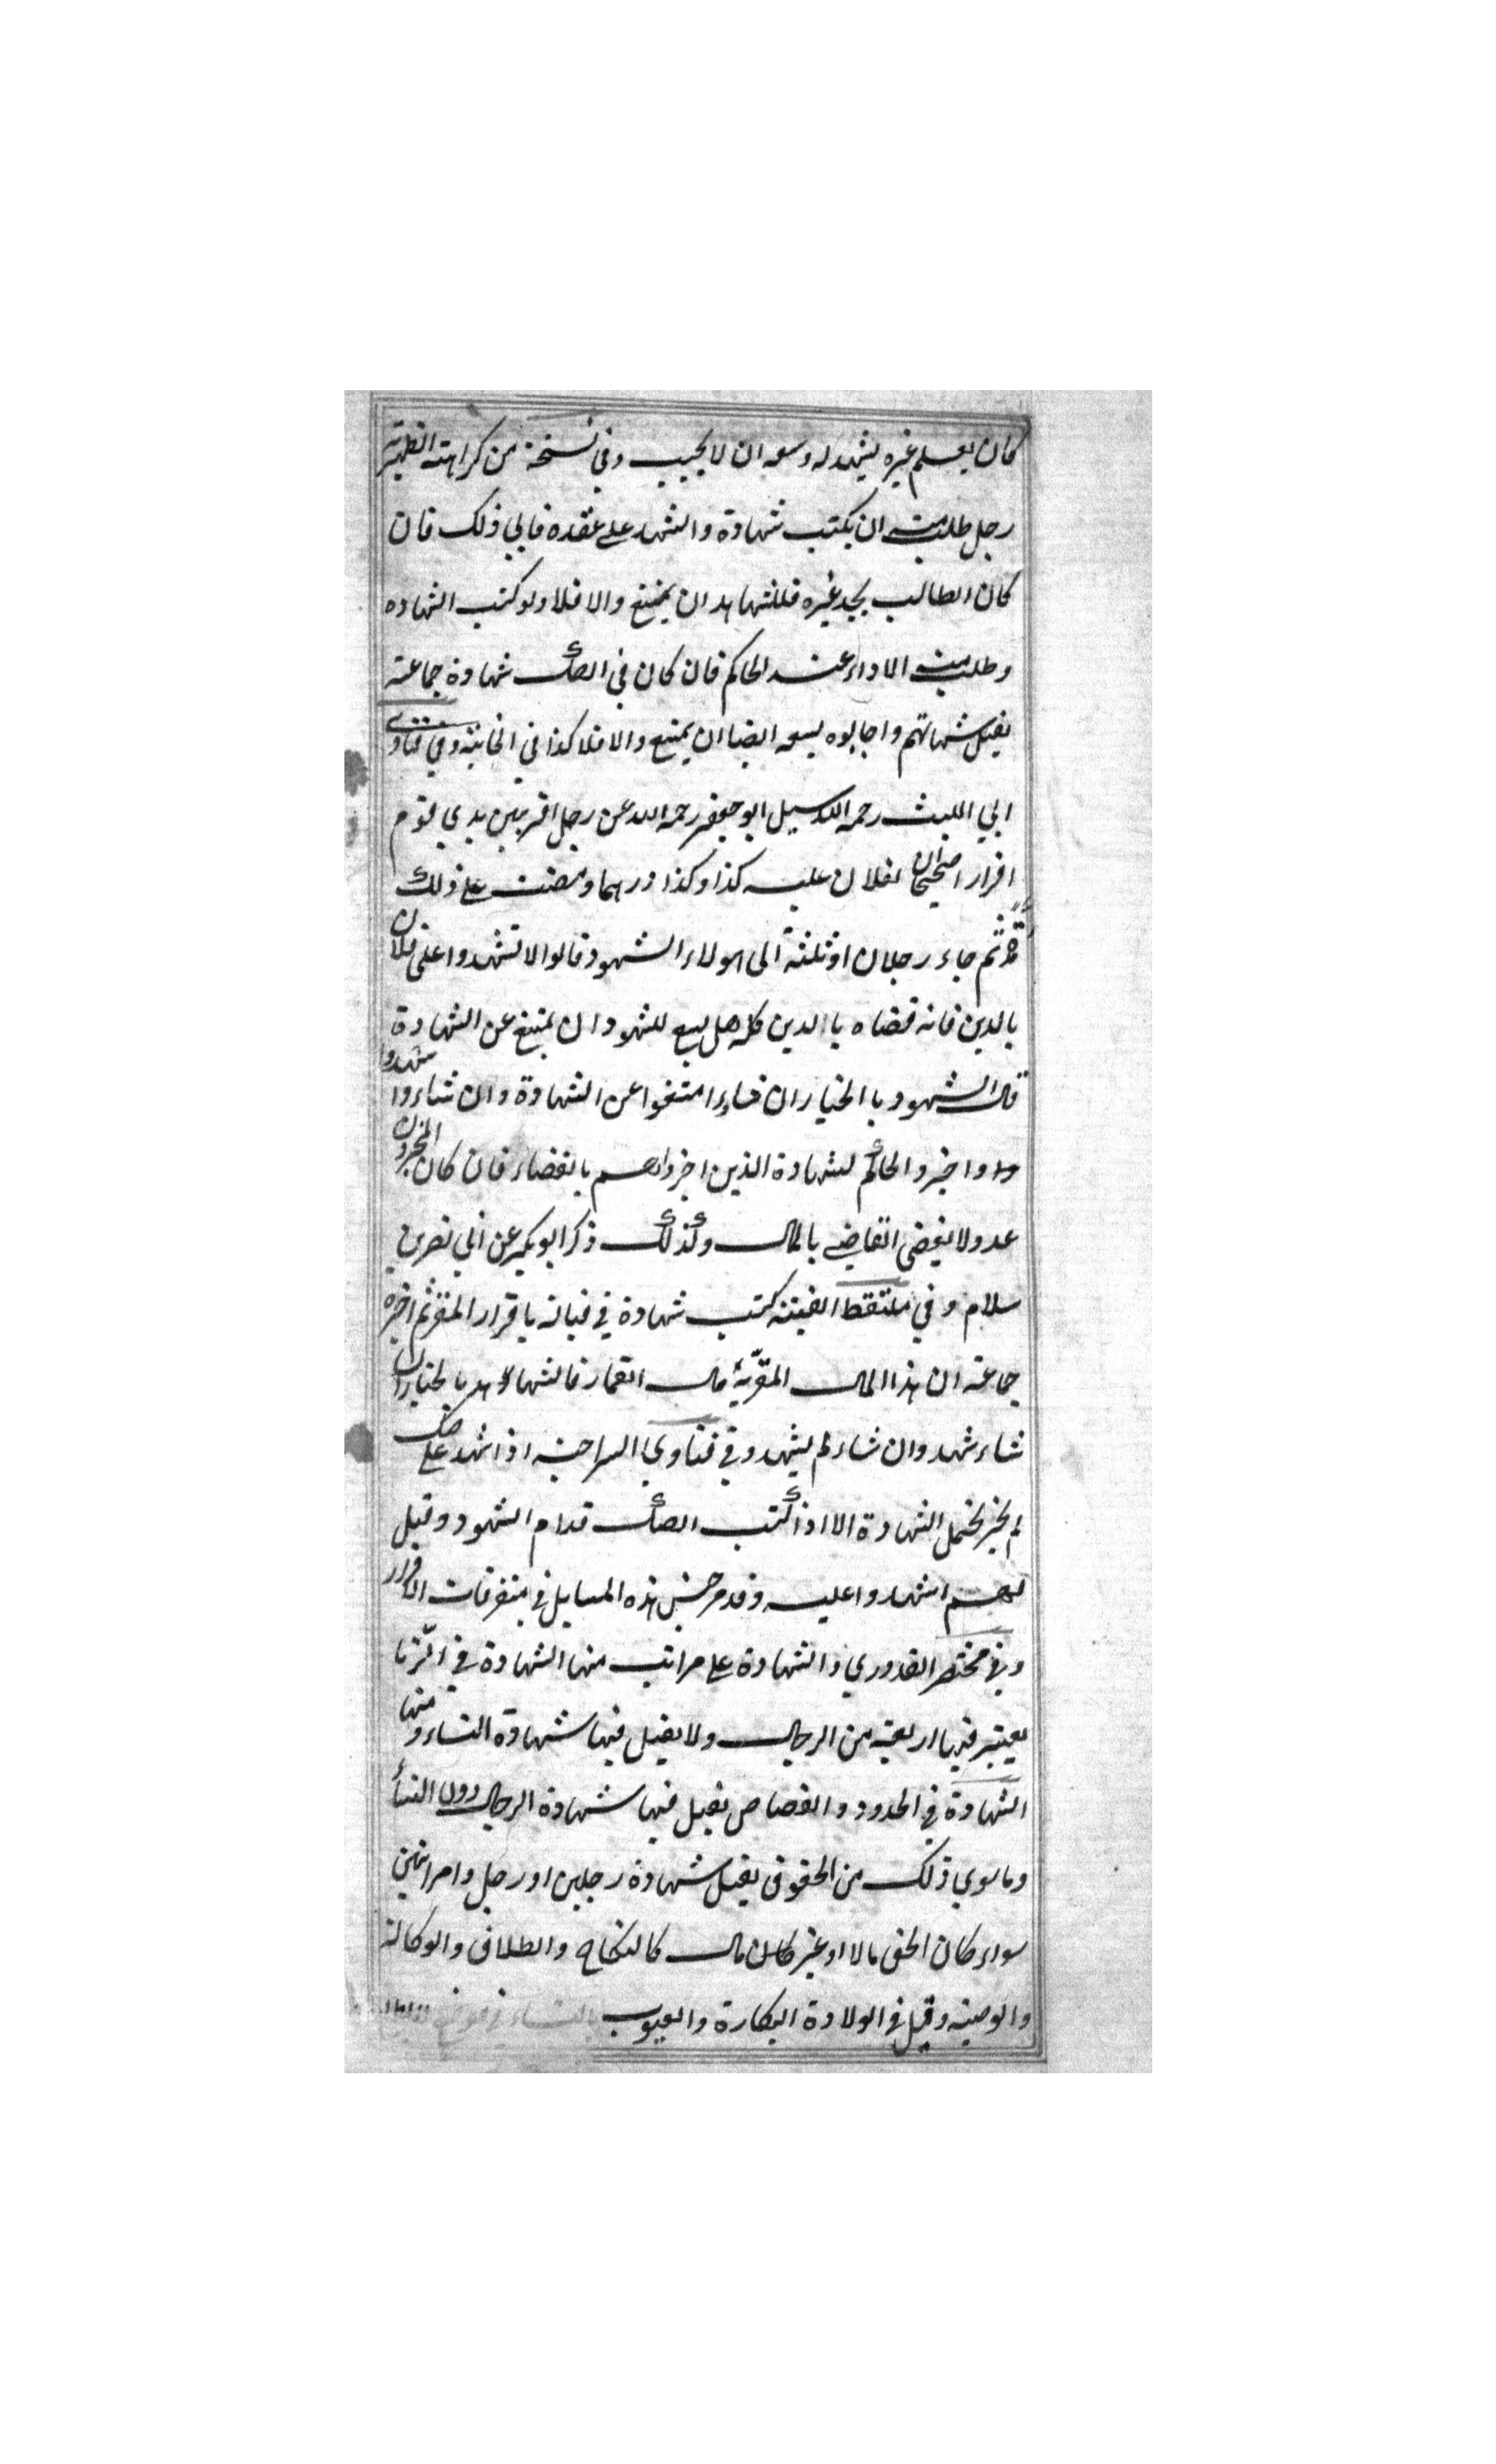 كان يعلم غيره يشهد له وسعه ان لا يجيب وفي نسخة من كراهته الظهيرية
رجل طلب منه ان يكتب شهادة والشهد على عقده فابي ذلك فان
كان الطالب يجد غيره فللشاهد ان يمتنع والا فلا ولو كتب الشهاده
وطلب منه الاداء عند الحاكم فان كان في الصك شهادة جماعة
يقبل شهاتهم واجابوه يسعه ايضا ان يمتنع والا فلا كذا في الخانية وفي فتاوي
ابي الليث رحمه الله سيل ابو جعفر رحمه الله عن رجل اقر بين يدي قوم
اقرارا صحيحا ان لفلان عليه كذا وكذا درهما ومضت على ذلك
ثم جاء رجلان او ثلثة الى هولاء الشهود قالوا لا تشهدوا على فلان
بالدين فانه قضاه باالدين كله هل يسع للشهود ان يمتنع عن الشهادة
قال الشهود باالخيار ان شاءوا امتنعوا عن الشهادة وان شاءوا شهدوا
واخبروا الحاكم لشهادة الذين اخبرواهم بالقضاء فان كان المخبرون
عدولا يقضى القاضي بالمال وكذلك ذكر ابو بكير عن ابي نصر بن
سلام وفي ملتقط الفتنه كتب شهادة في قبالة باقرار المقر ثم اخبره
جماعة ان هذا المال المقر به مال القمار فالشهاهد بالخيار ان
شاء شهد وان شاء لم يشهد وفي فتاوي السراجية اذا شهد على صك
لم يجز تحمل الشهادة الا اذا كتب الصك قدام الشهود وقيل
لهم اشهدوا عليه وقد مر جنس هذه المسايل في متفرقات الاقرار
وفي مختصر القدوري والشهادة على مراتب منها الشهادة في الزنا
يعتبر فيها اربعة من الرجال ولا يقبل فيها شهادة النساء ومنها
الشهادة في الحدود والقصاص يقبل فيها شهادة الرجال دون النسأ
وما سوي ذلك من الحقوق يقبل شهادة رجلين او رجل وامراتين
سواء كان الحق مالا او غير مال كالنكاح والطلاق والوكالة
والوصية وقيل في الولادة البكارة والعيوب بالنساء في موضع